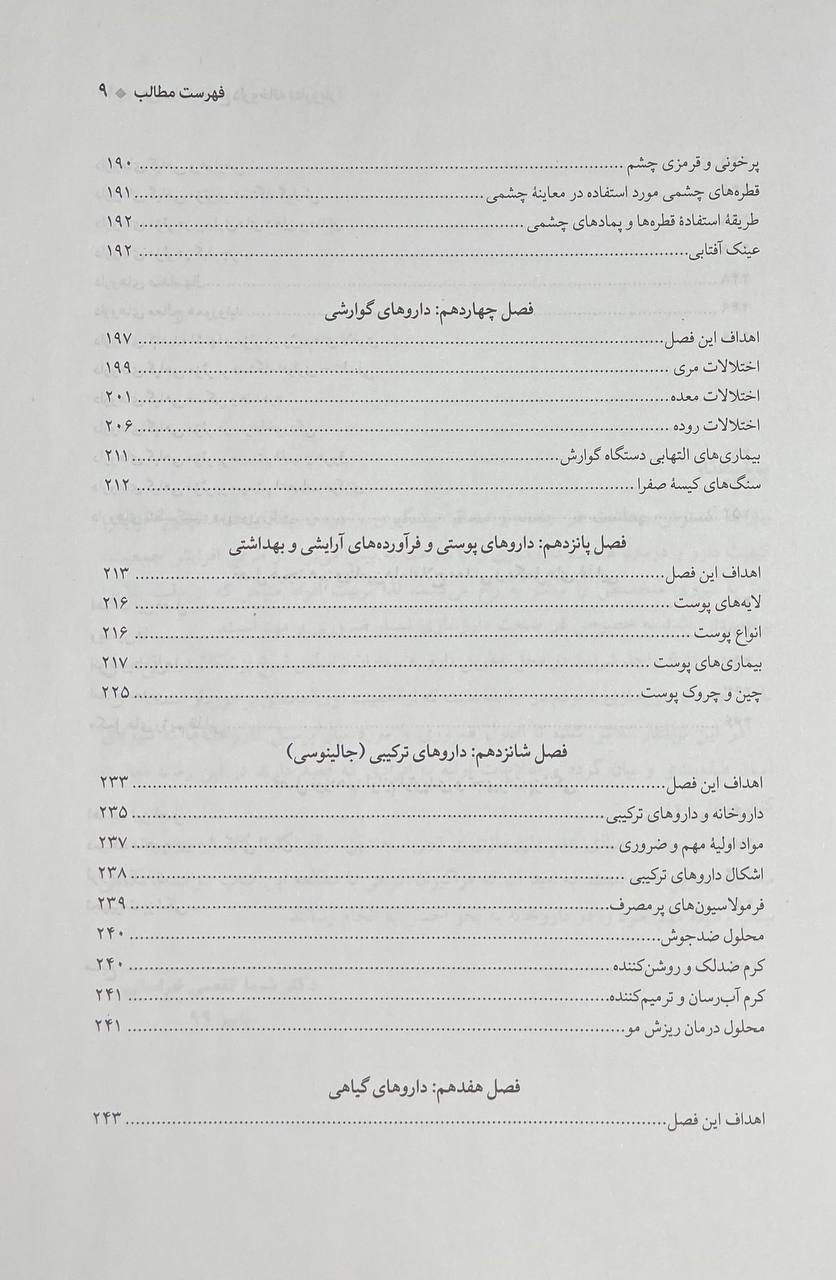 فهرست مطالب ◆ ۹
پرخونی و قرمزی چشم ........ ۱۹۰
قطره‌های چشمی مورد استفاده در معاینهٔ چشمی ........ ۱۹۱
طریقهٔ استفادهٔ قطره‌ها و پمادهای چشمی ........ ۱۹۲
عینک آفتابی ........ ۱۹۲
فصل چهاردهم: داروهای گوارشی
اهداف این فصل ........ ۱۹۷
اختلالات مری ........ ۱۹۹
اختلالات معده ........ ۲۰۱
اختلالات روده ........ ۲۰۶
بیماری‌های التهابی دستگاه گوارش ........ ۲۱۱
سنگ‌های کیسهٔ صفرا ........ ۲۱۲
فصل پانزدهم: داروهای پوستی و فرآورده‌های آرایشی و بهداشتی
اهداف این فصل ........ ۲۱۳
لایه‌های پوست ........ ۲۱۶
انواع پوست ........ ۲۱۶
بیماری‌های پوست ........ ۲۱۷
چین و چروک پوست ........ ۲۲۵
فصل شانزدهم: داروهای ترکیبی (جالینوسی)
اهداف این فصل ........ ۲۳۳
داروخانه و داروهای ترکیبی ........ ۲۳۵
مواد اولیهٔ مهم و ضروری ........ ۲۳۷
اشکال داروهای ترکیبی ........ ۲۳۸
فرمولاسیون‌های پرمصرف ........ ۲۳۹
محلول ضدجوش ........ ۲۴۰
کرم ضدلک و روشن‌کننده ........ ۲۴۰
کرم آب‌رسان و ترمیم‌کننده ........ ۲۴۱
محلول درمان ریزش مو ........ ۲۴۱
فصل هفدهم: داروهای گیاهی
اهداف این فصل ........ ۲۴۳